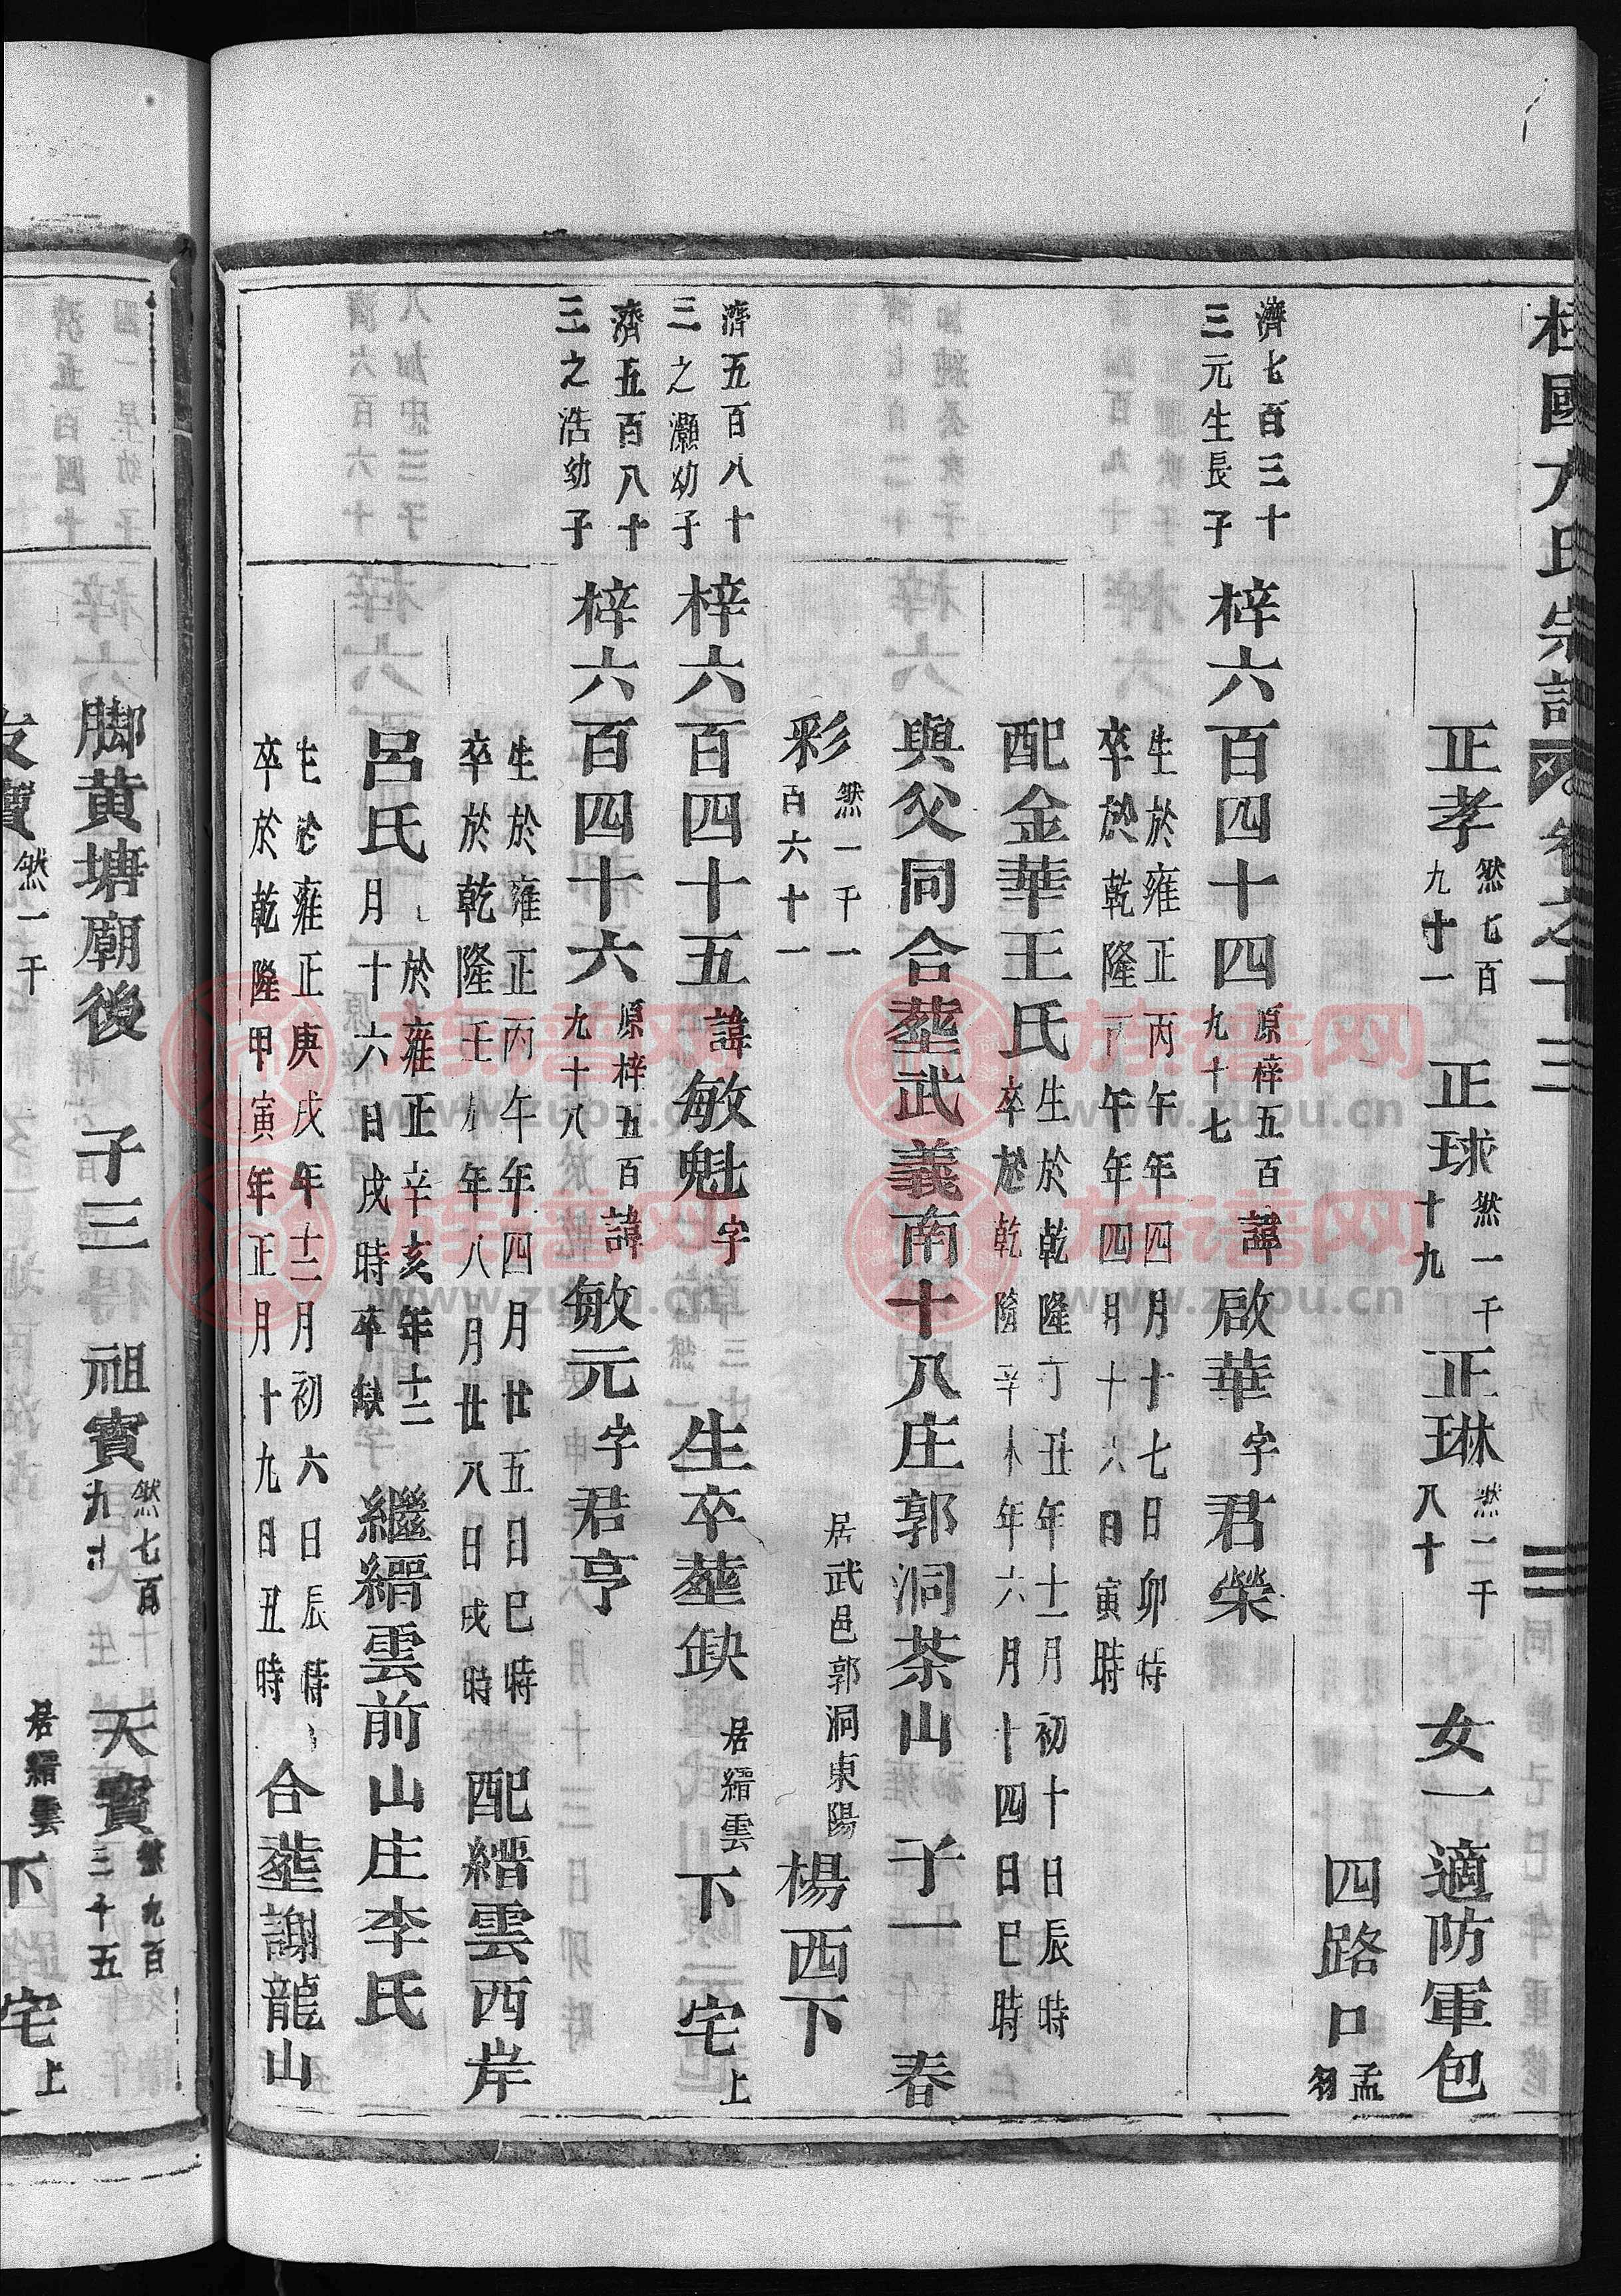 桂國方氏宗譜 卷之十三 三
正孝 然七百九十一 正球 然一千十九 正琳 然一千八十 女一適防軍包
四路口 孟
濟七百三十三元生長子 梓六百四十四 原梓五百九十七 諱啟華 字君榮
生於雍正丙午年四月十七日卯時
卒於乾隆丙午年四月十六日寅時
配金華王氏 生於乾隆丁丑年十一月初十日辰時
卒於乾隆辛未年六月十四日巳時
與父同合塟武義南十八庄郭洞茶山 子一 春
彩 然一千一百六十一 居武邑郭洞東陽 楊西下
濟五百八十三之灝幼子 梓六百四十五 諱敏魁 字 生卒塟缺 居縉雲 下宅上
濟五百八十三之浩幼子 梓六百四十六 原梓五百九十八 諱敏元 字君亨
生於雍正丙午年四月廿五日巳時
卒於乾隆壬年八月廿八日戌時 配縉雲西岸
呂氏 於雍正辛亥年十二月十六日戌時卒缺 繼縉雲前山庄李氏
生於雍正庚戌年十二月初六日辰時
卒於乾隆甲寅年正月十九日丑時 合塟謝龍山
脚黄塘廟後 子三 祖寶 然七百九十 天寶 然九百三十五
友寶 然一千 居縉雲 下宅上
族谱网
www.zupu.cn
族谱网
www.zupu.cn
族谱网
www.zupu.cn
族谱网
www.zupu.cn